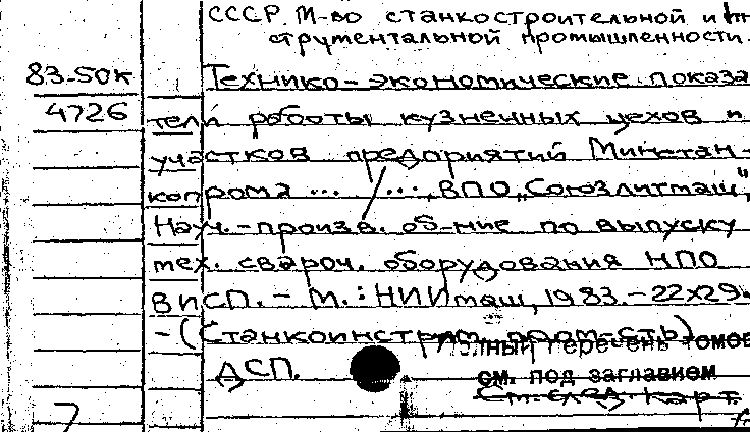 СССР. М-во станкостроительной и ин
струментальной промышленности.
83-50к Технико-экономические показа
4726 тели работы кузнечных цехов и
участков предприятий Минстан-
копрома ... / ..., ВПО „Союзлитмаш",
Науч.-произв. об-ние по выпуску
тех. свароч. оборудования НПО
ВИСП. - М.: НИИмаш, 1983. - 22х29
- (Станкоинструм. пром-сть)
Полный перечень томов
ДСП.
см. под заглавием
См. след. карт.